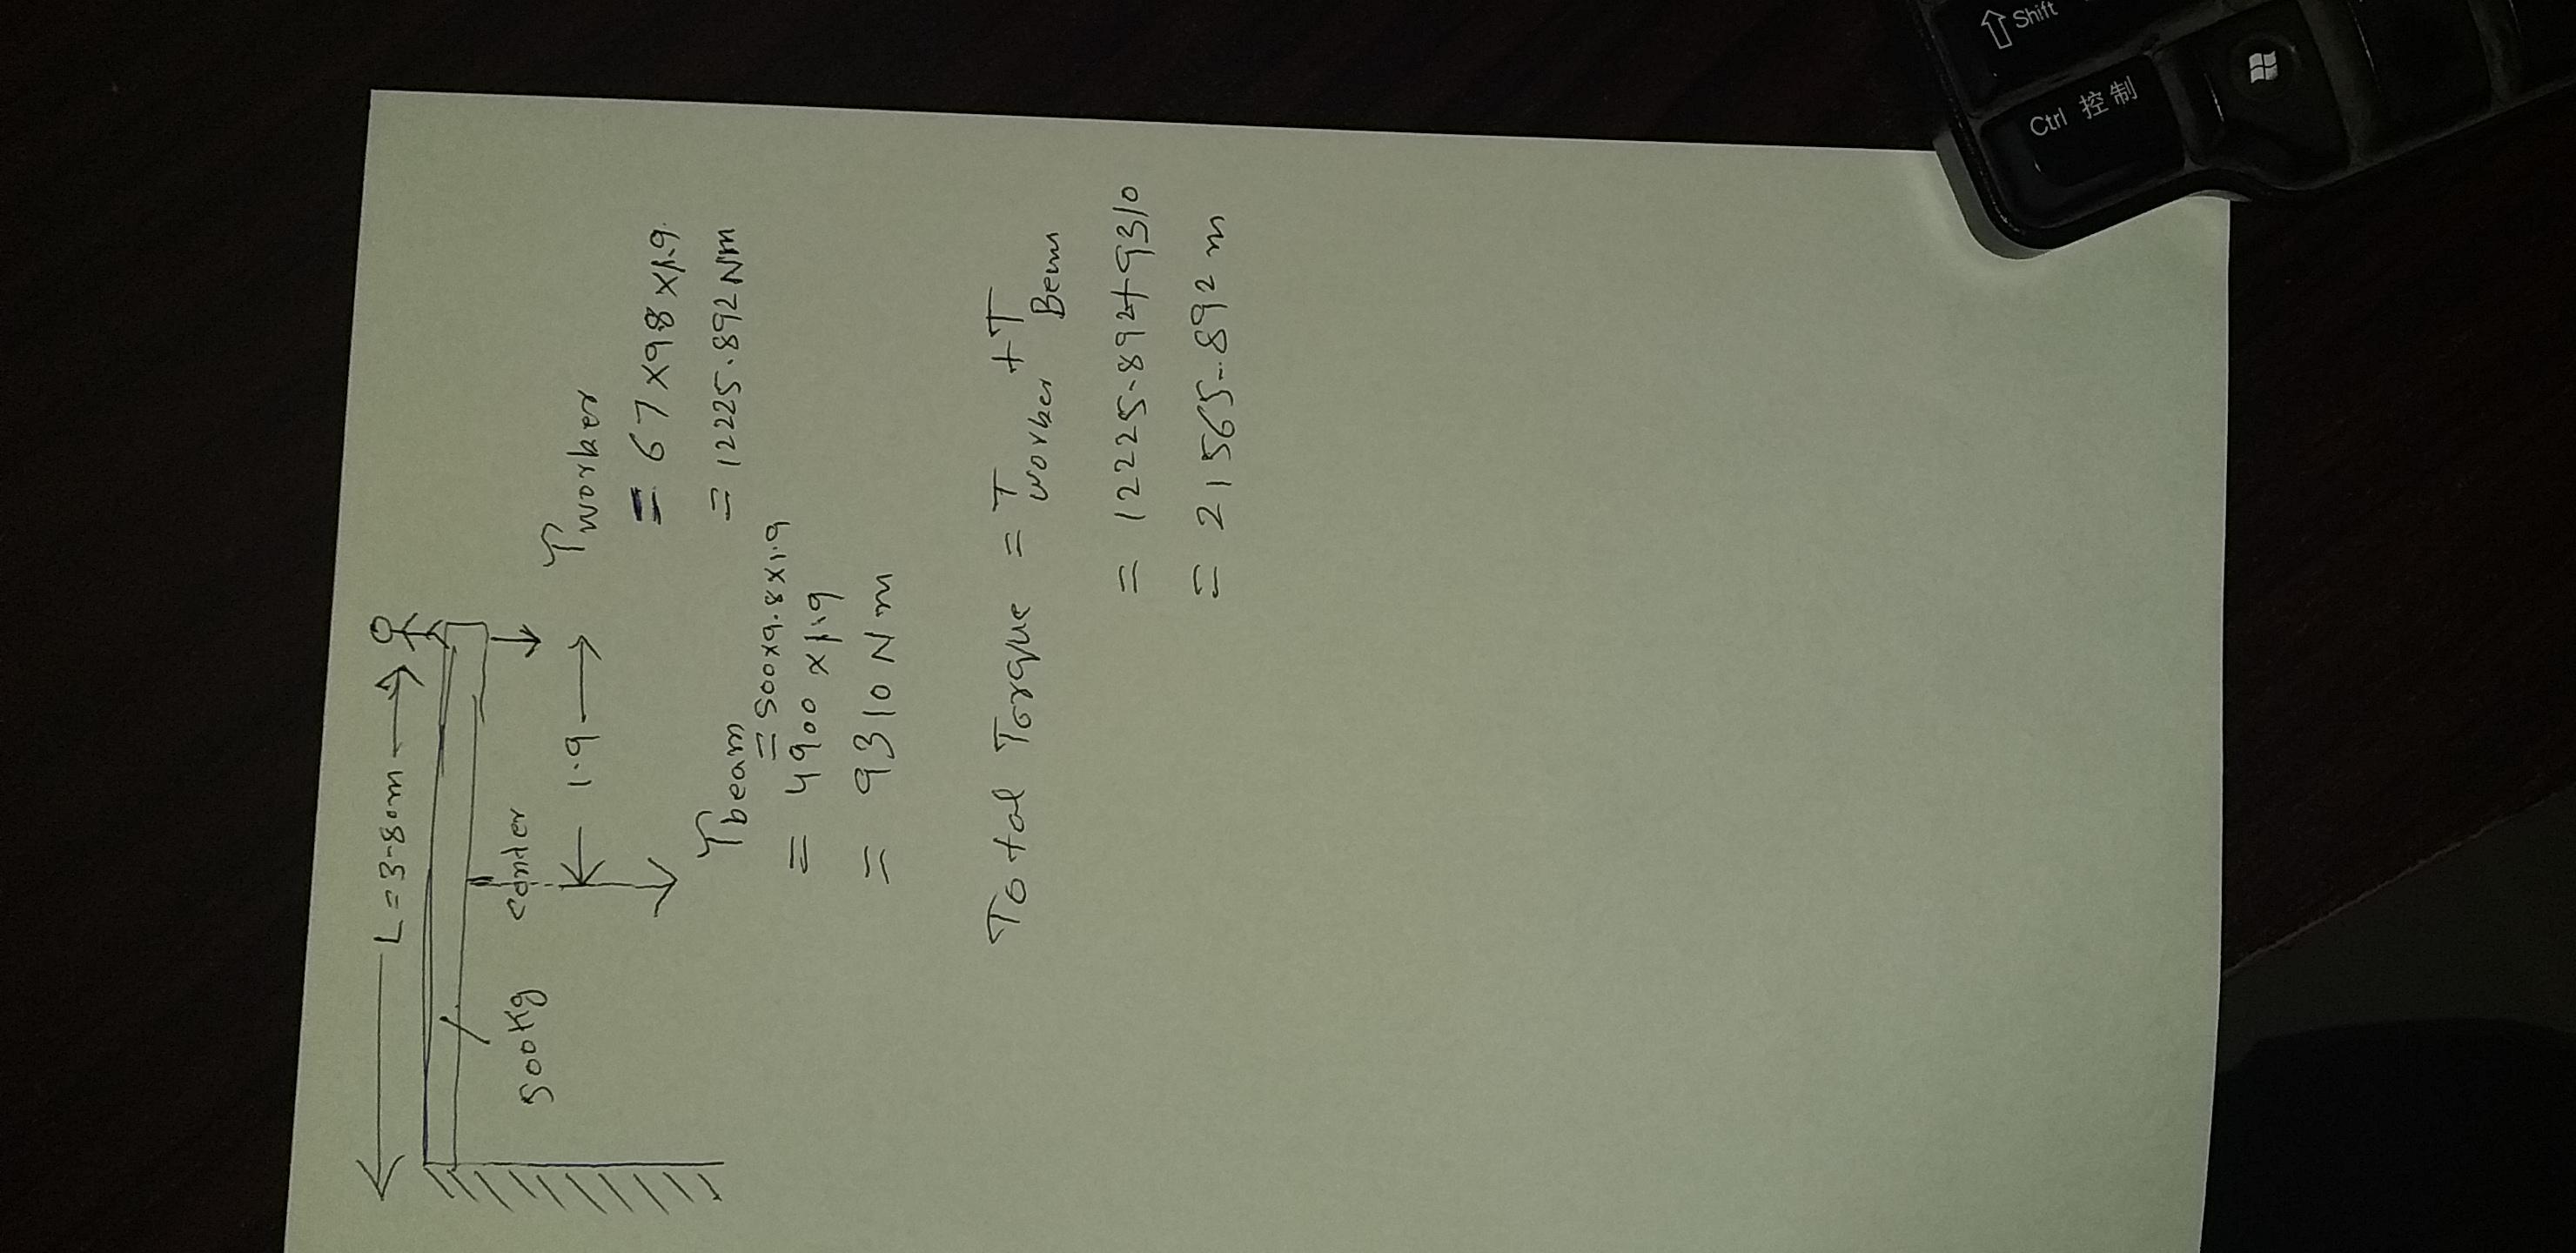 L = 3.80m
500Kg
center
1.9
τworker
= 67 x 98 x 1.9
= 12225.892 Nm
τbeam
= 500x9.8x1.9
= 4900 x 1.9
= 9310 Nm
Total Torque = Tworker + TBeem
= 12225.892+9310
= 21565.892 m
Shift
Ctrl 控制